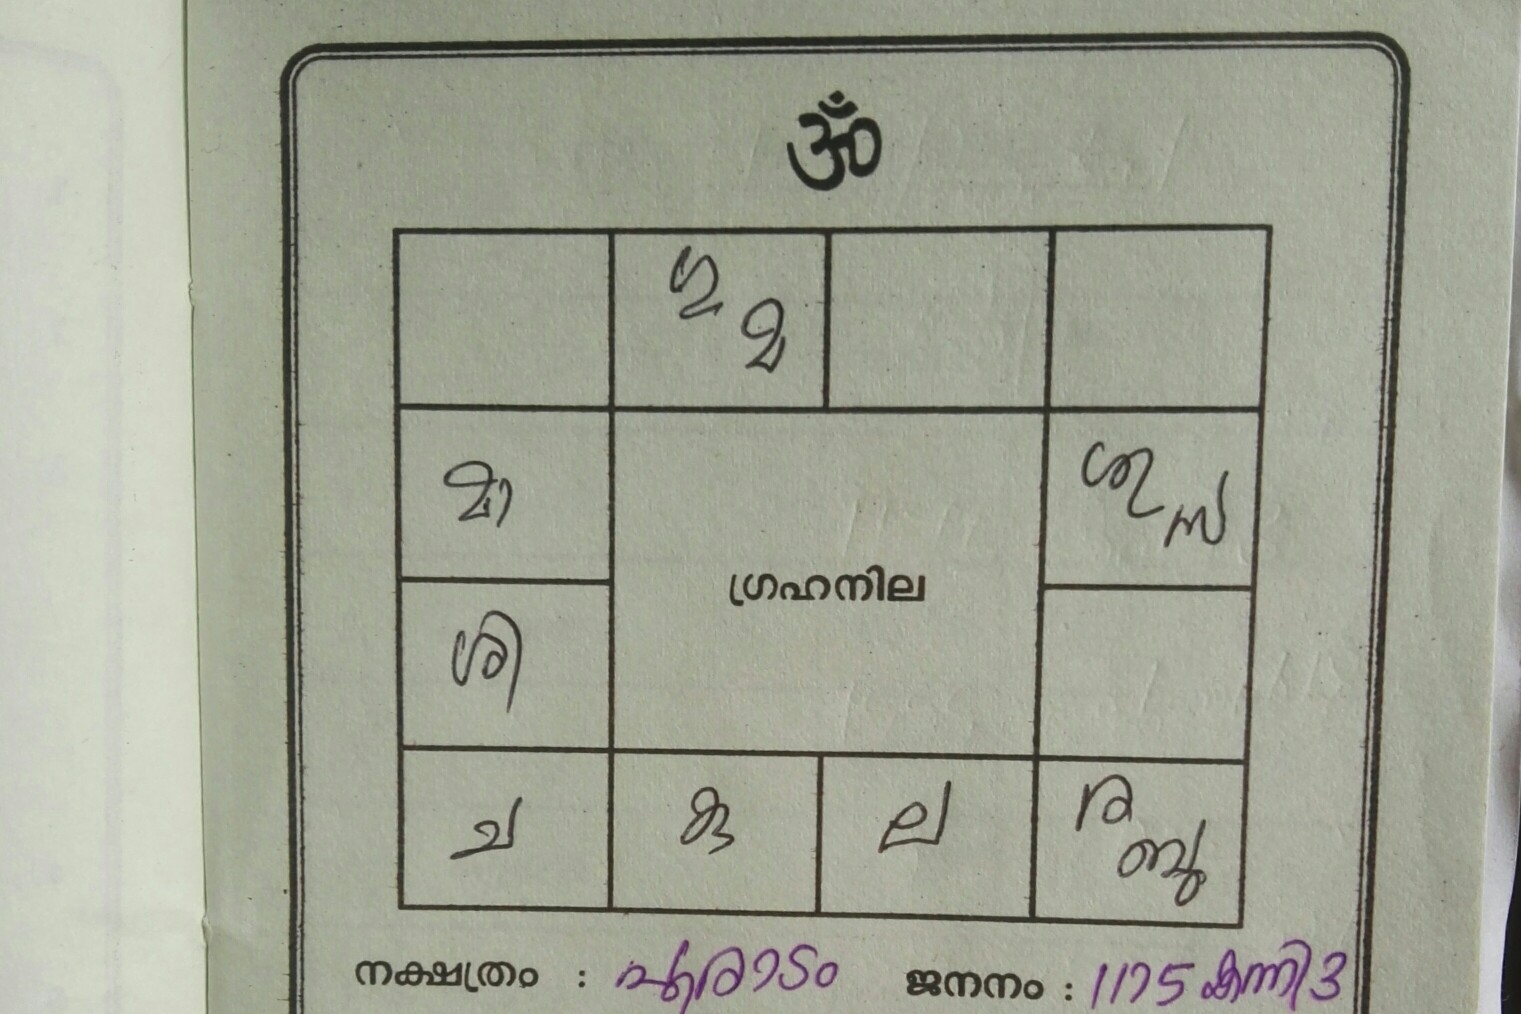 ॐ
ഗു
മ
മാ
ശു
സ
ഗ്രഹനില
ശി
ച
കു
ല
ര
ബു
നക്ഷത്രം : പൂരാടം ജനനം : 1175 കന്നി 3